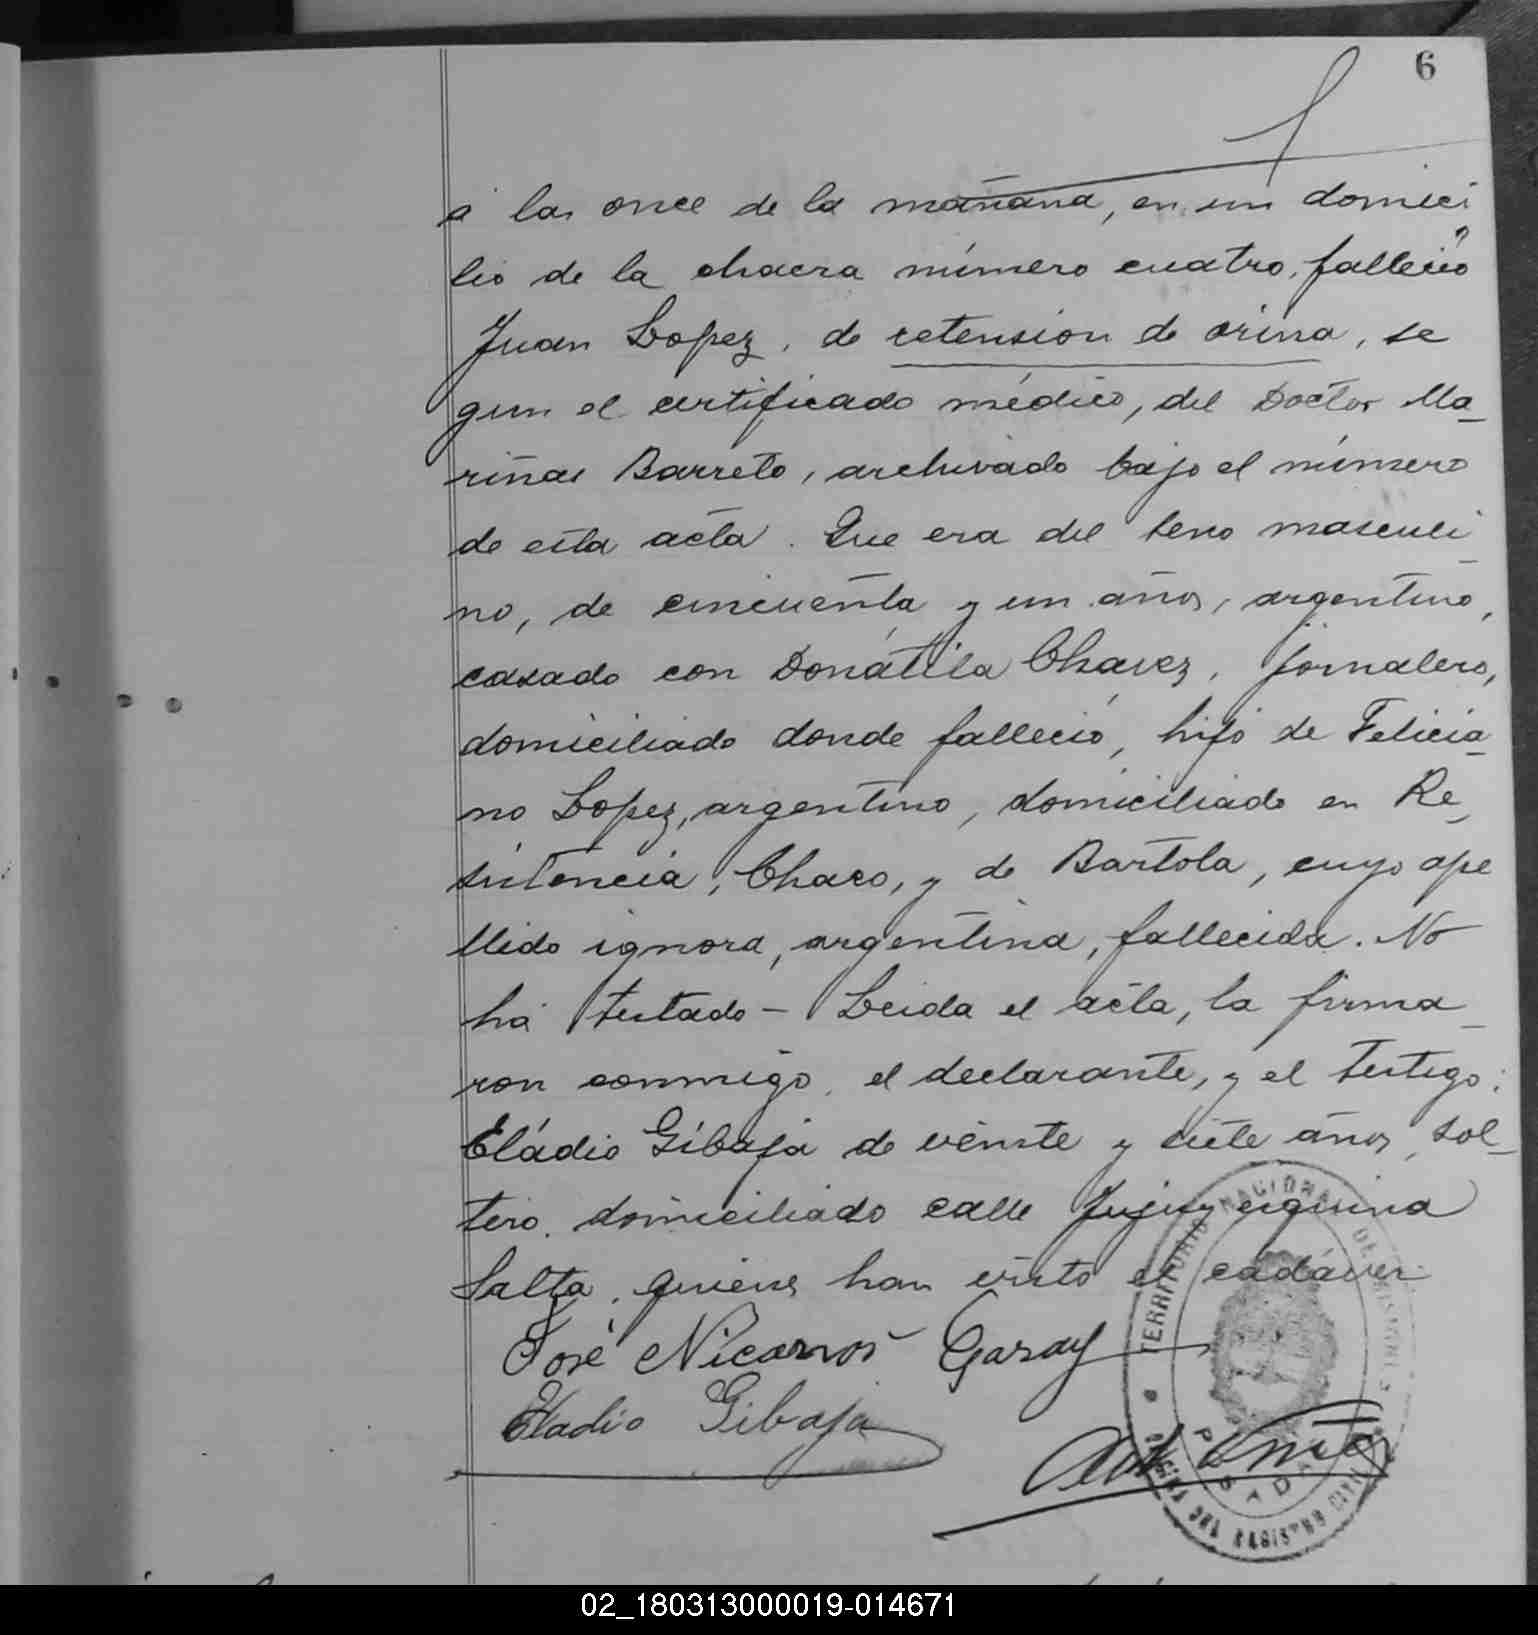 6
á las once de la mañana, en un domici
lio de la chacra número cuatro, falleció
Juan Lopez, de retension de orina, se
gun el certificado médico, del Doctor Ma_
riñas Barreto, archivado bajo el número
de esta acta. Que era del sexo masculi_
no, de cincuenta y un años, argentino,
casado con Donátila Chavez, jornalero,
domiciliado donde falleció, hijo de Felicia_
no Lopez, argentino, domiciliado en Re_
sistencia, Chaco, y de Bartola, cuyo ape
llido ignora, argentina, fallecida. No
há testado - Leida el acta, la firma_
ron conmigo, el declarante, y el testigo:
Eládio Gibaja de veinte y siete años, sol_
tero, domiciliado calle Jujuy esquina
Salta, quienes han visto el cadáver
José Nicanor Garay
Eladio Gibaja
TERRITORIO NACIONAL DE MISIONES
POSADAS
OFICINA DEL REGISTRO CIVIL
02_180313000019-014671